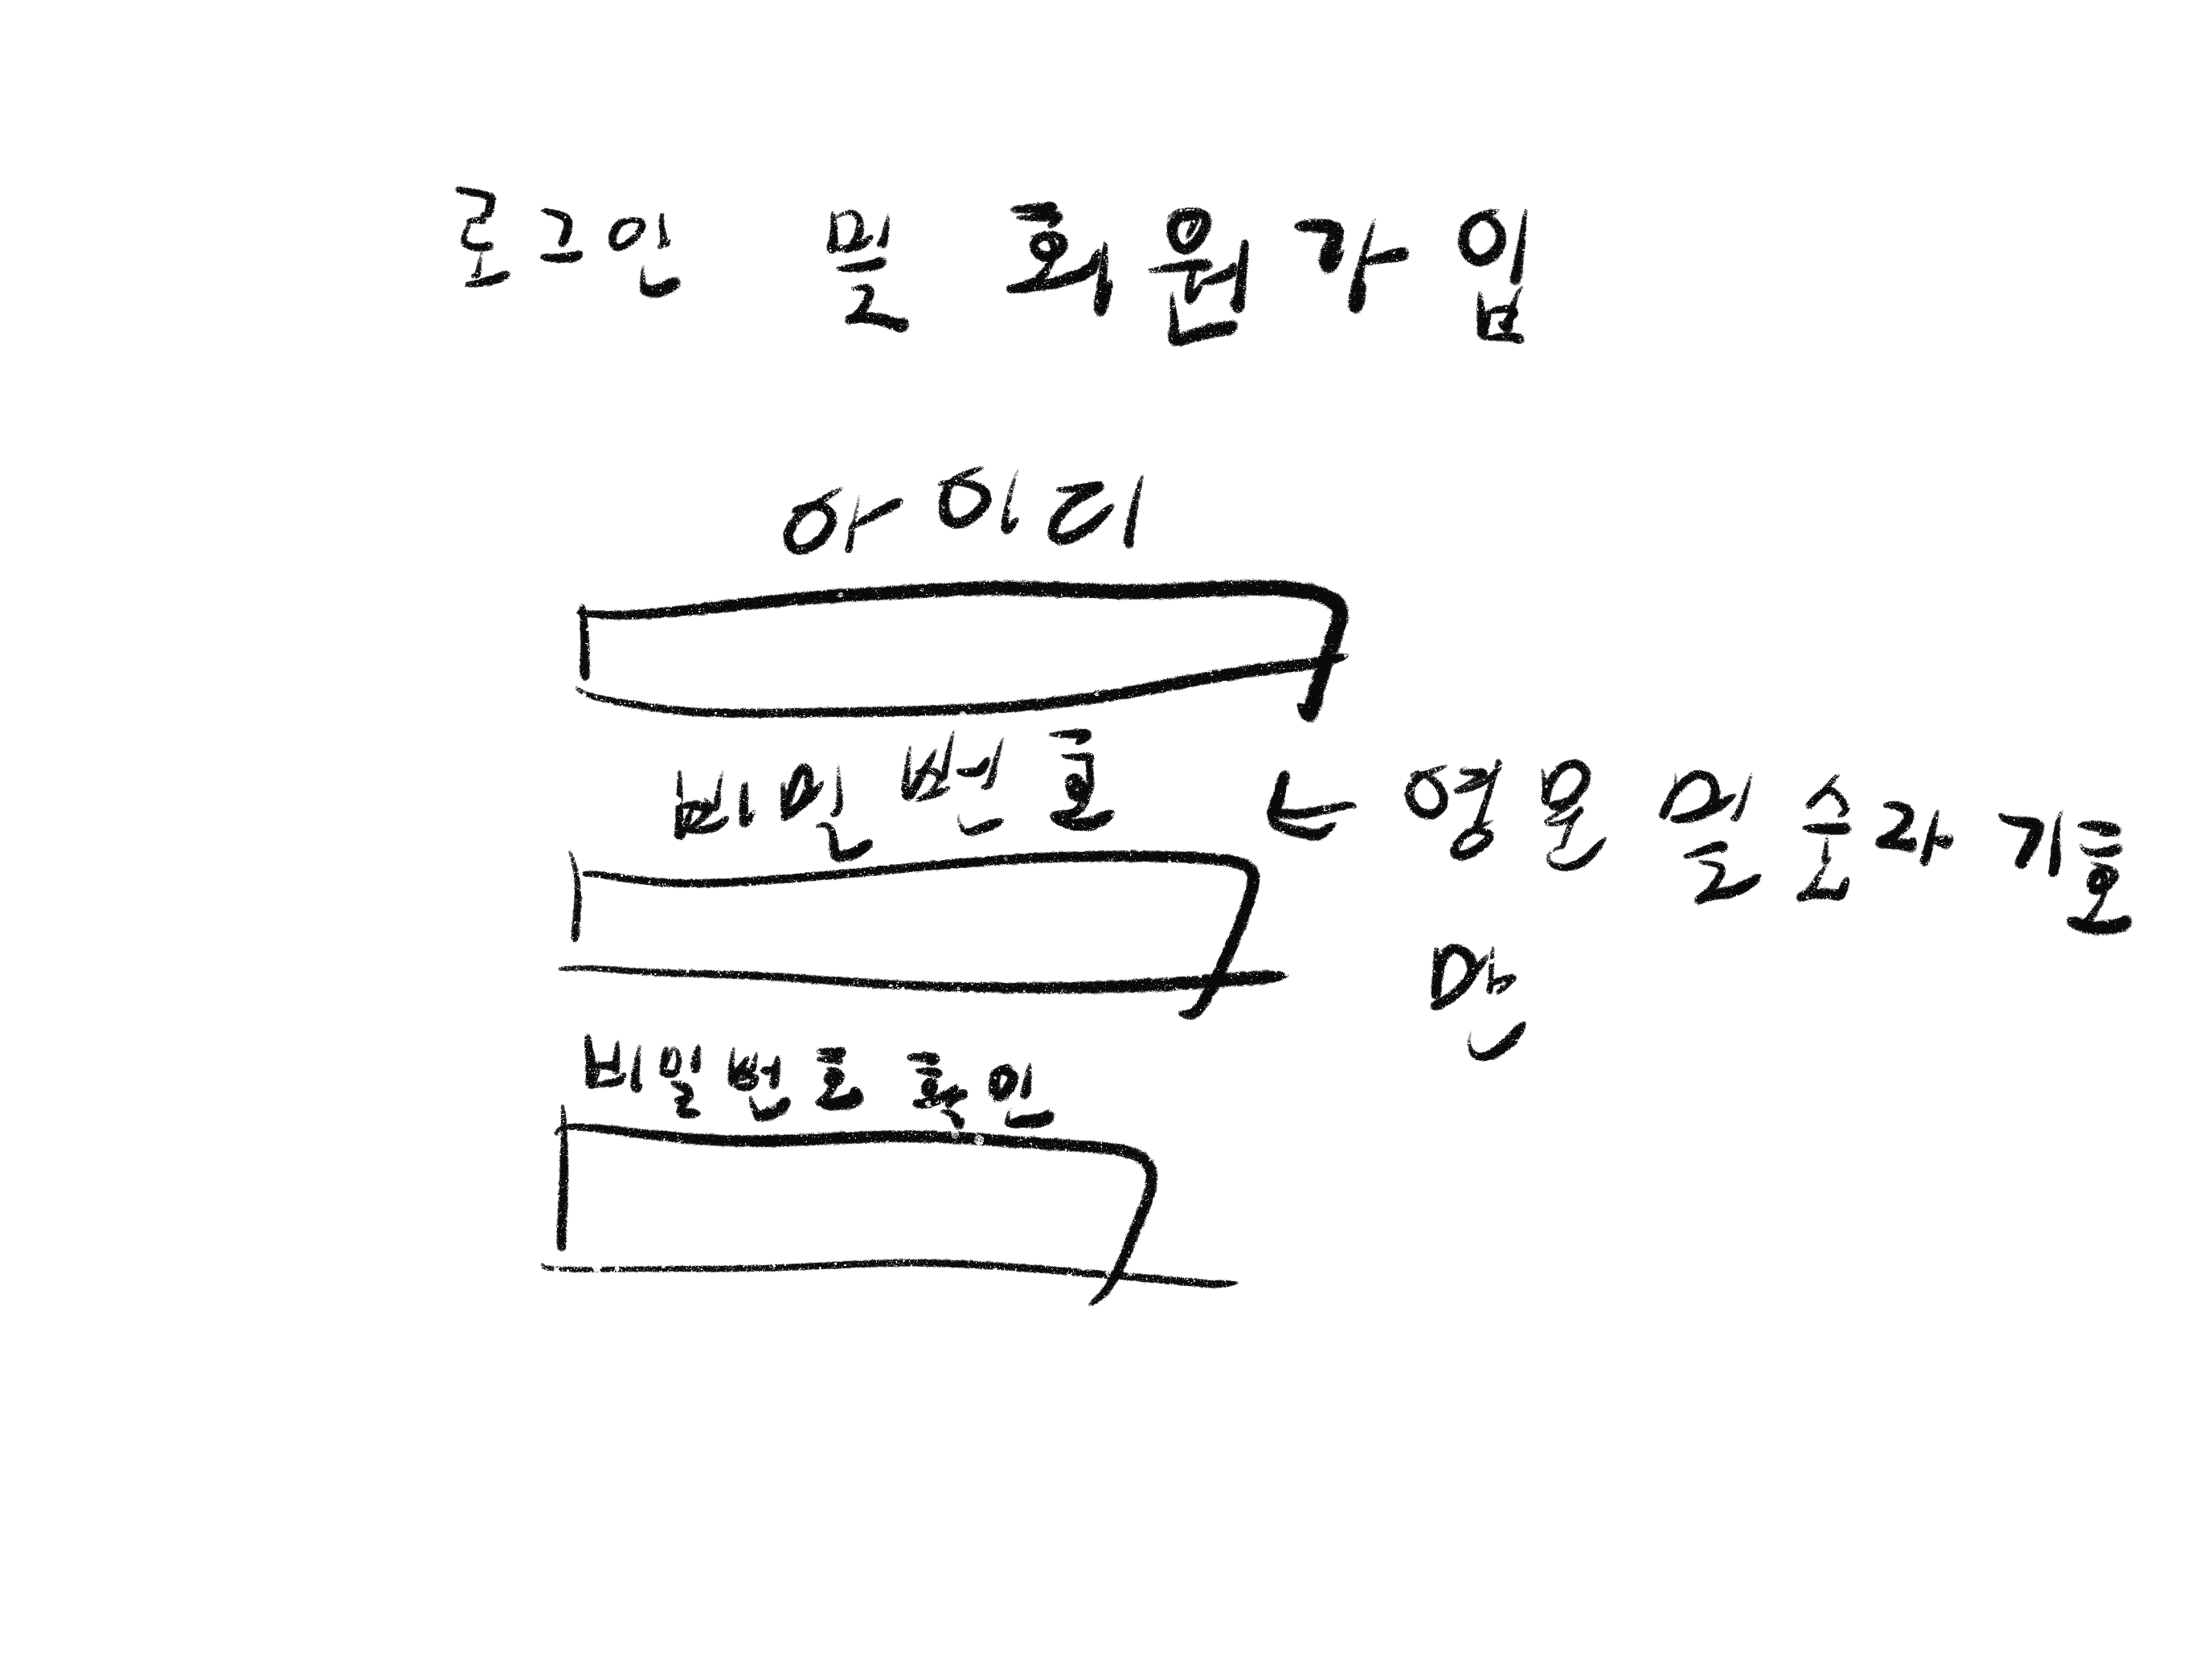 로그인 및 회원가입
아이디
비밀번호 는 영문 및 숫자 기호
만
비밀번호 확인